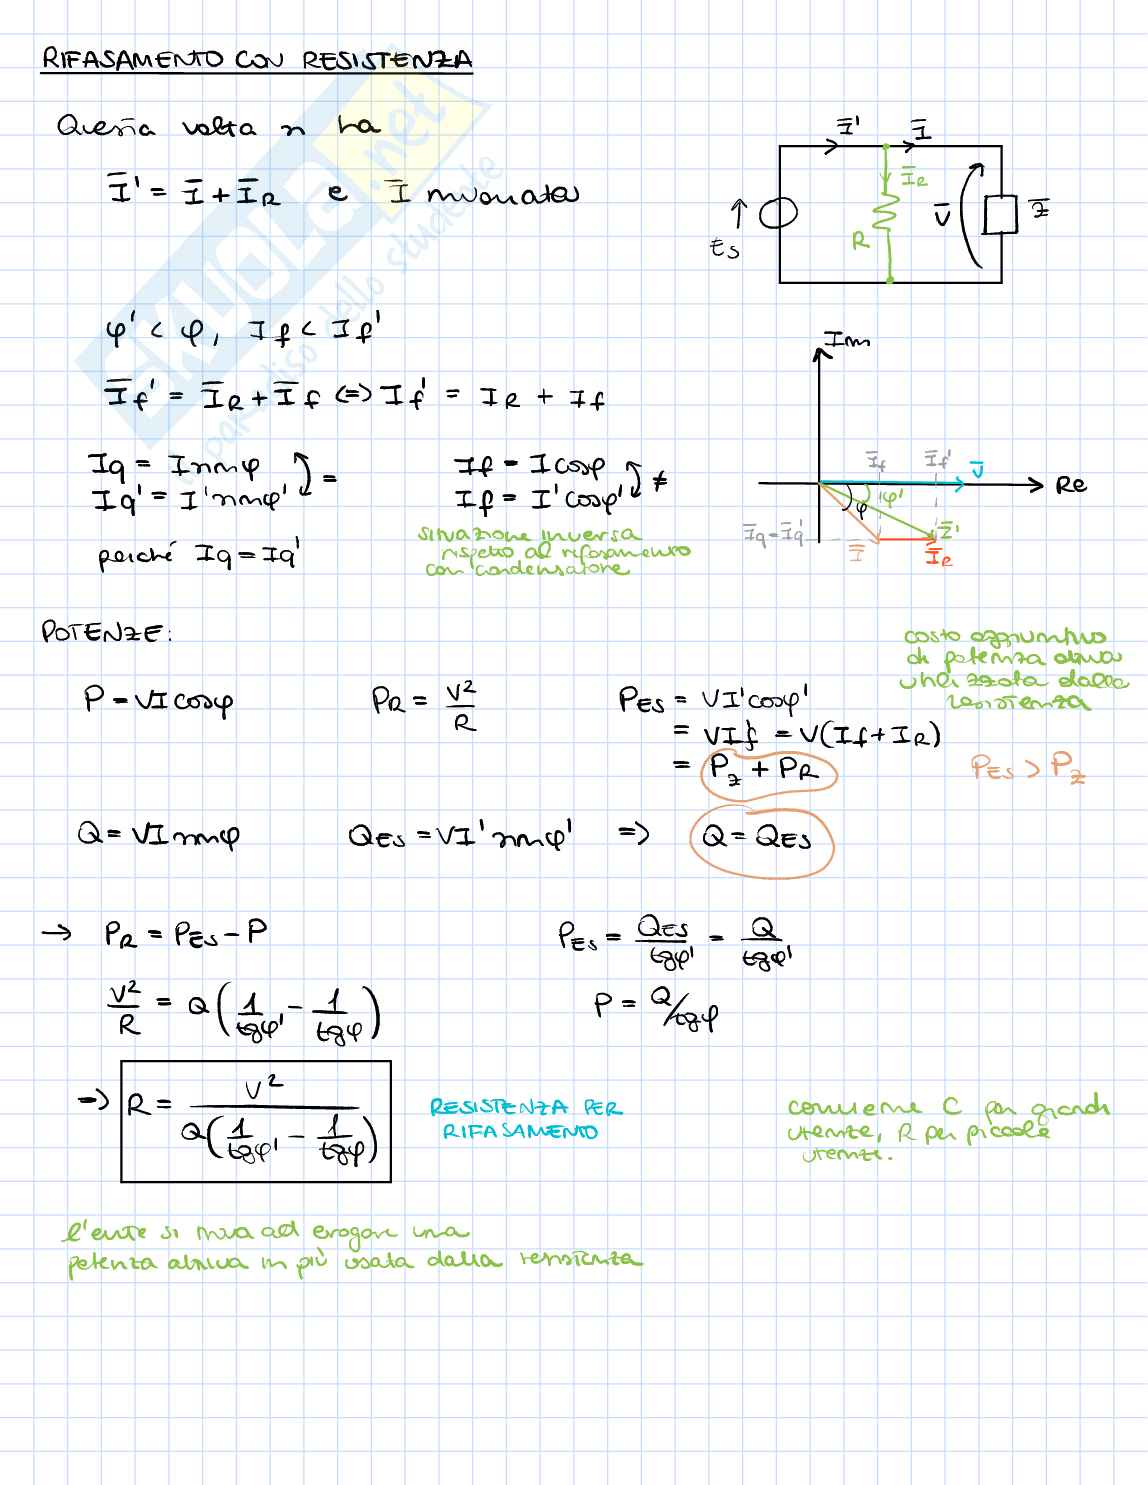 RIFASAMENTO CON RESISTENZA
Questa volta si ha
Ī' = Ī + Ī_R e Ī invariata
Ī' Ī
Ī_R
R
V̄
Z̄
E_S
φ' < φ, If < If'
Īf' = Ī_R + Īf ⇔ If' = I_R + If
Iq = I sinφ
Iq' = I' sinφ' =
perché Iq = Iq'
If = I cosφ
If = I' cosφ' ≠
situazione inversa
rispetto al rifasamento
con condensatore
Im
Īf Īf' V̄
Re
φ φ'
Īq = Īq' Ī Ī' Ī_R
POTENZE:
costo aggiuntivo
di potenza attiva
utilizzata dalla
resistenza
P = VI cosφ
P_R = V²/R
P_ES = VI' cosφ'
= VIf = V(If + I_R)
= P_Z + P_R
P_ES > P_Z
Q = VI sinφ Q_ES = VI' sinφ' => Q = Q_ES
→ P_R = P_ES - P
P_ES = Q_ES/tgφ' = Q/tgφ'
V²/R = Q(1/tgφ' - 1/tgφ)
P = Q/tgφ
→ R = V²/Q(1/tgφ' - 1/tgφ)
RESISTENZA PER
RIFASAMENTO
conviene C per grandi
utenze, R per piccole
utenze.
l'ente si trova ad erogare una
potenza attiva in più usata dalla resistenza
SKUOLA.net